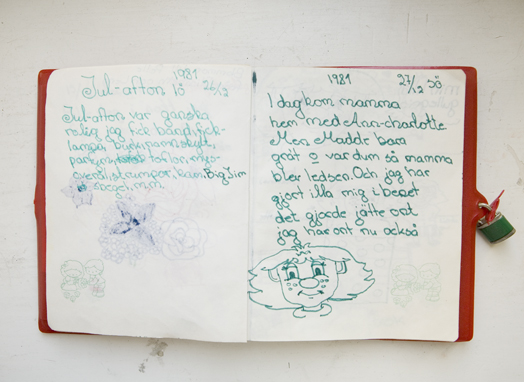 1981
Jul-afton lö 26/12
Jul-afton var ganska
rolig jag fick band, fick-
lampa,
tofflor, mys-
overall, strumpor, kam, Big Jim
spegel, m.m.
1981 27/12 Sö
I dag kom mamma
hem med Ann-charlotte.
Men Madde bara
grät o var dum så mamma
blev ledsen. Och jag har
gjort illa mig i benet
det gjorde jätte ont
jag har ont nu också